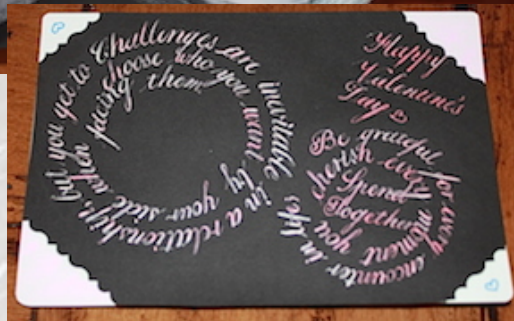 Challenges are inevitable in a relationship, but you get to choose who you want by your side when facing them
Happy
Valentine's
Day
Be grateful for every encounter in life you
cherish every moment
Spend
Together